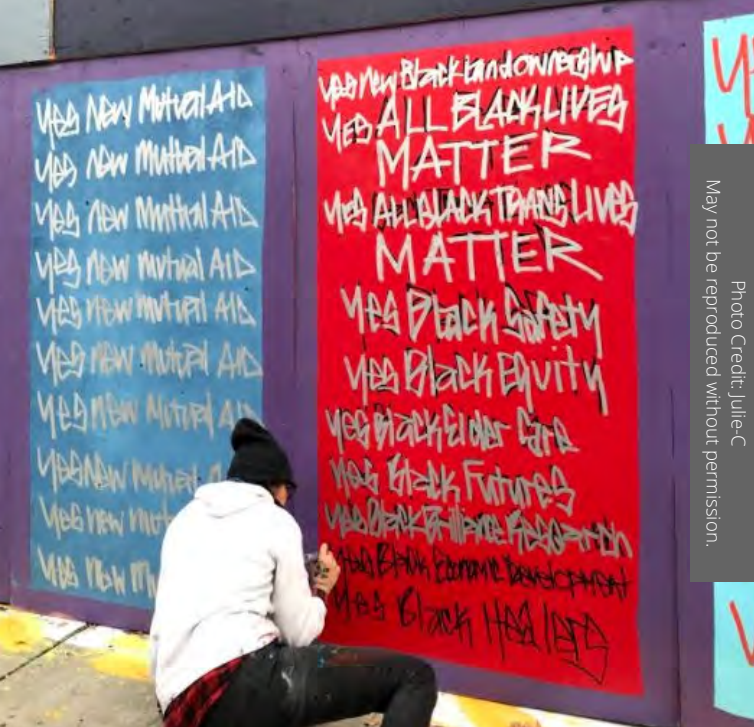 yes new Mutual AID
yes new Mutual AID
yes new Mutual AID
yes new mutual AID
yes new mutual AID
yes new mutual AID
yes new mutual AID
yes new mutual
yes new mut
yes new m
yes new Black Land ownership
yes ALL BLACK LIVES
MATTER
yes ALL BLACK TRANS LIVES
MATTER
yes Black Safety
yes Black Equity
yes Black Elder Care
yes Black Futures
yes Black Brilliance Research
yes Black Economic Development
yes Black Healers
Photo Credit: Julie-C
May not be reproduced without permission.